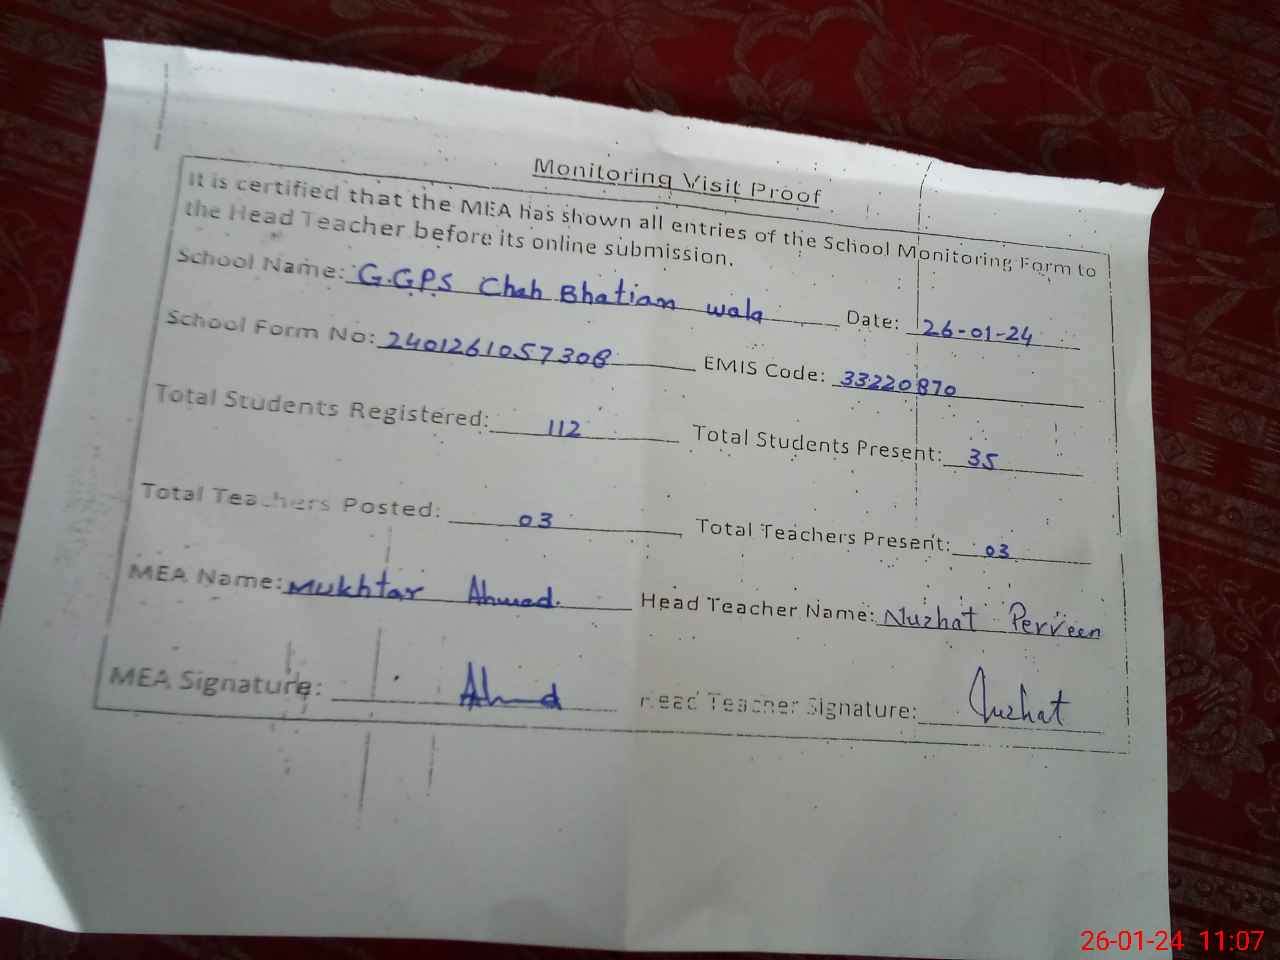 Monitoring Visit Proof
It is certified that the MEA has shown all entries of the School Monitoring Form to
the Head Teacher before its online submission.
School Name: G.GPS Chah Bhatian wala Date: 26-01-24
School Form No: 2401261057308 EMIS Code: 33220870
Total Students Registered: 112 Total Students Present: 35
Total Teachers Posted: 03 Total Teachers Present: 03
MEA Name: Mukhtar Ahmad. Head Teacher Name: Nuzhat Perveen
MEA Signature: Ahmd Head Teacher Signature: Nuzhat
26-01-24 11:07